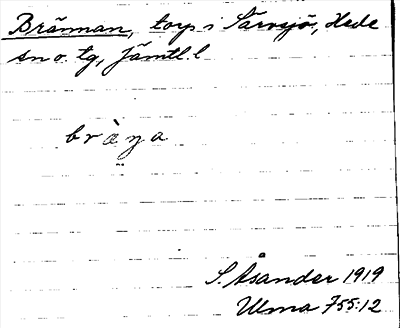 Brännan, torp i Särvsjö, Hede
sn o. tg, Jämtl. l.
bràṇa
S. Åsander 1919
Ulma 755:12